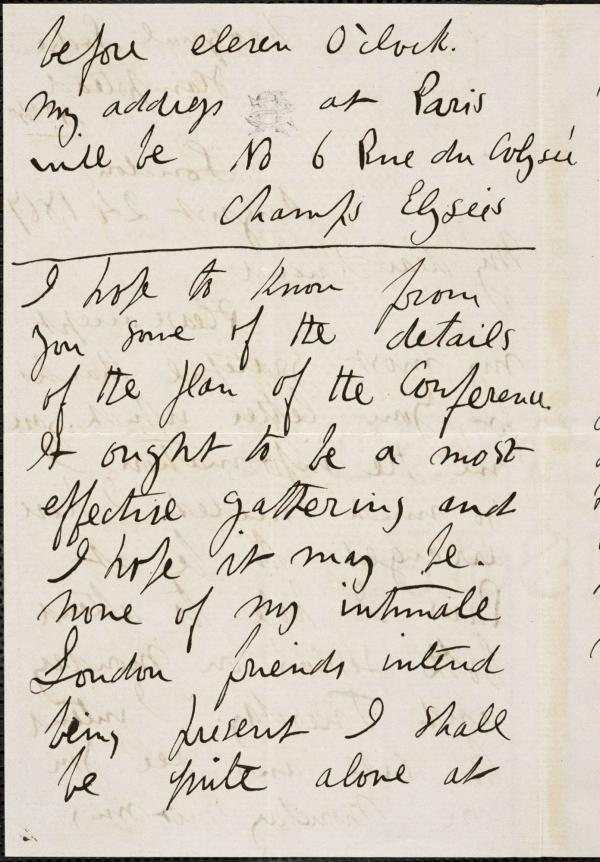 before eleven O'clock.
My address at Paris
will be No 6 Rue du Colysée
Champs Elysées
I hope to know from
you some of the details
of the plan of the Conference.
It ought to be a most
effective gathering and
I hope it may be.
None of my intimate
London friends intend
being present I shall
be quite alone at